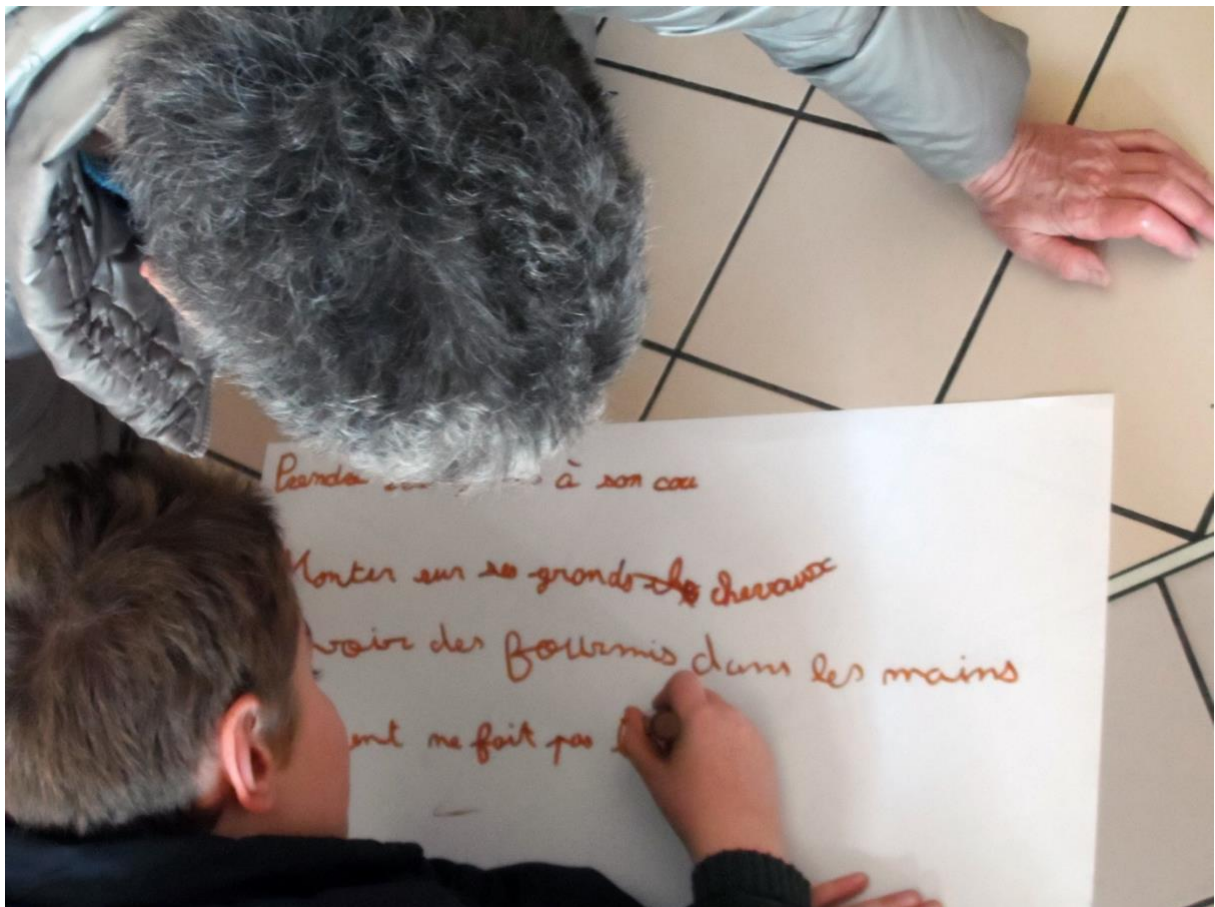 Prendre à son cou
Monter sur ses grands chevaux
avoir des fourmis dans les mains
ent ne fait pas